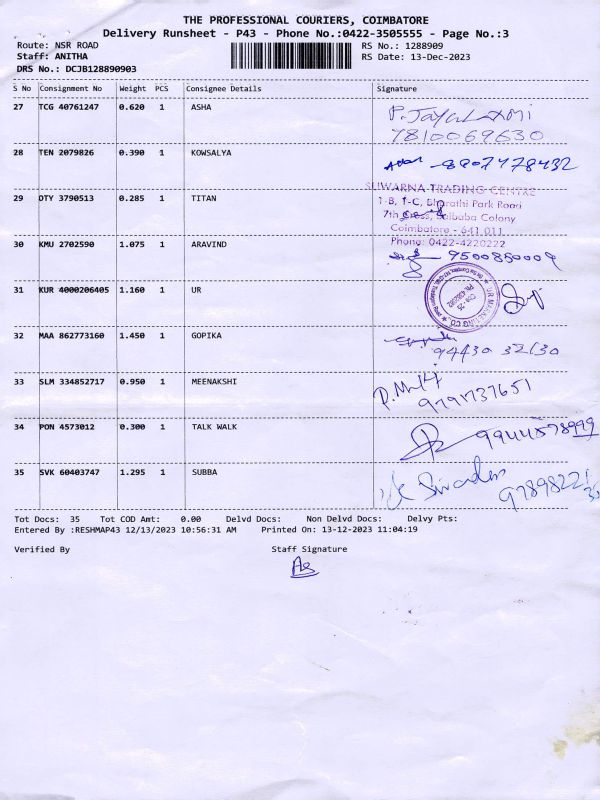 THE PROFESSIONAL COURIERS, COIMBATORE
Delivery Runsheet - P43 - Phone No.:0422-3505555 - Page No.:3
Route: NSR ROAD RS No.: 1288909
Staff: ANITHA RS Date: 13-Dec-2023
DRS No.: DCJB128890903
S No Consignment No Weight PCS Consignee Details Signature
27 TCG 40761247 0.620 1 ASHA P. Jayalaxmi
7810069630
28 TEN 2079826 0.390 1 KOWSALYA 8807478432
29 DTY 3790513 0.285 1 TITAN
SUWARNA TRADING CENTRE
1-B, 1-C, Bharathi Park Road
7th Cross, Saibaba Colony
Coimbatore - 641 011
Phone: 0422-4220222
30 KMU 2702590 1.075 1 ARAVIND 9500850009
31 KUR 4000206405 1.160 1 UR
UR MARKETING CO.
32 MAA 862773160 1.450 1 GOPIKA
94430 32130
33 SLM 334852717 0.950 1 MEENAKSHI
9791737651
34 PON 4573012 0.300 1 TALK WALK 9944578999
35 SVK 60403747 1.295 1 SUBBA
Tot Docs: 35 Tot COD Amt: 0.00 Delvd Docs: Non Delvd Docs: Delvy Pts:
Entered By :RESHMAP43 12/13/2023 10:56:31 AM Printed On: 13-12-2023 11:04:19
Verified By Staff Signature